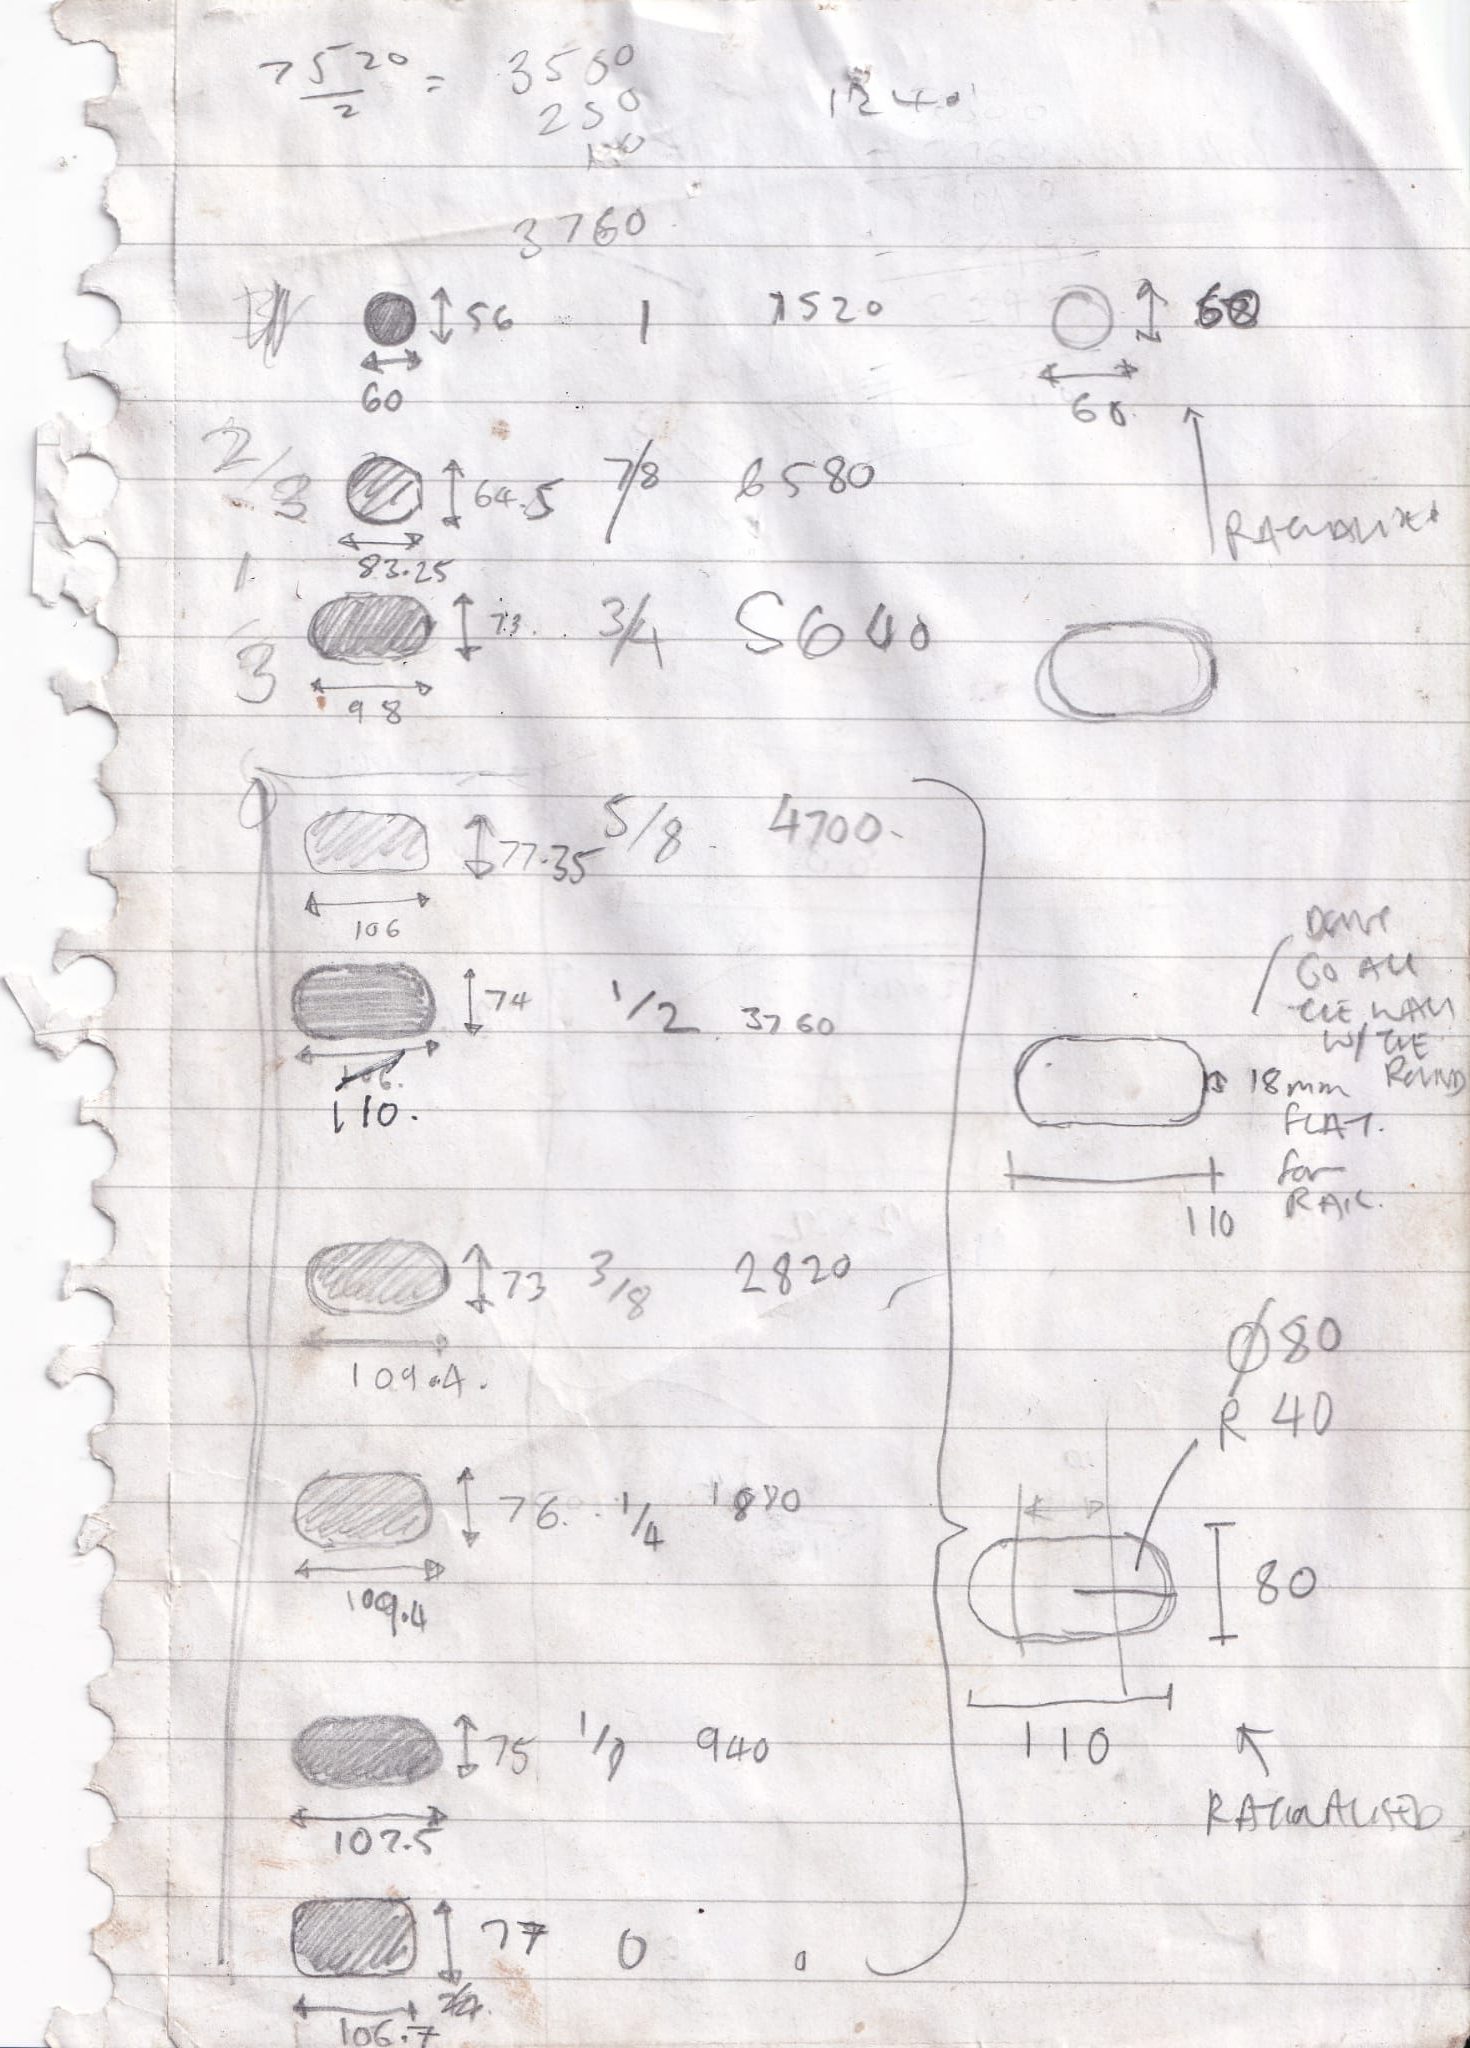 7520/2 = 3560
250
3760
1240
56 1 7520
60
60
60
2/3
64.5 7/8 6580
83.25
RATIONALISED
1
3
73. 3/4 5640
98
77.35 5/8 4700
106
DONT
GO ALL
THE WAY
W/ THE
ROUND
74 1/2 3760
106.
110.
18mm
FLAT.
for
RAIL.
110
73 3/8 2820
109.4.
Ø80
R 40
76. 1/4 1880
109.4
80
110
75 1/8 940
107.5
RATIONALISED
77 0 0
106.7